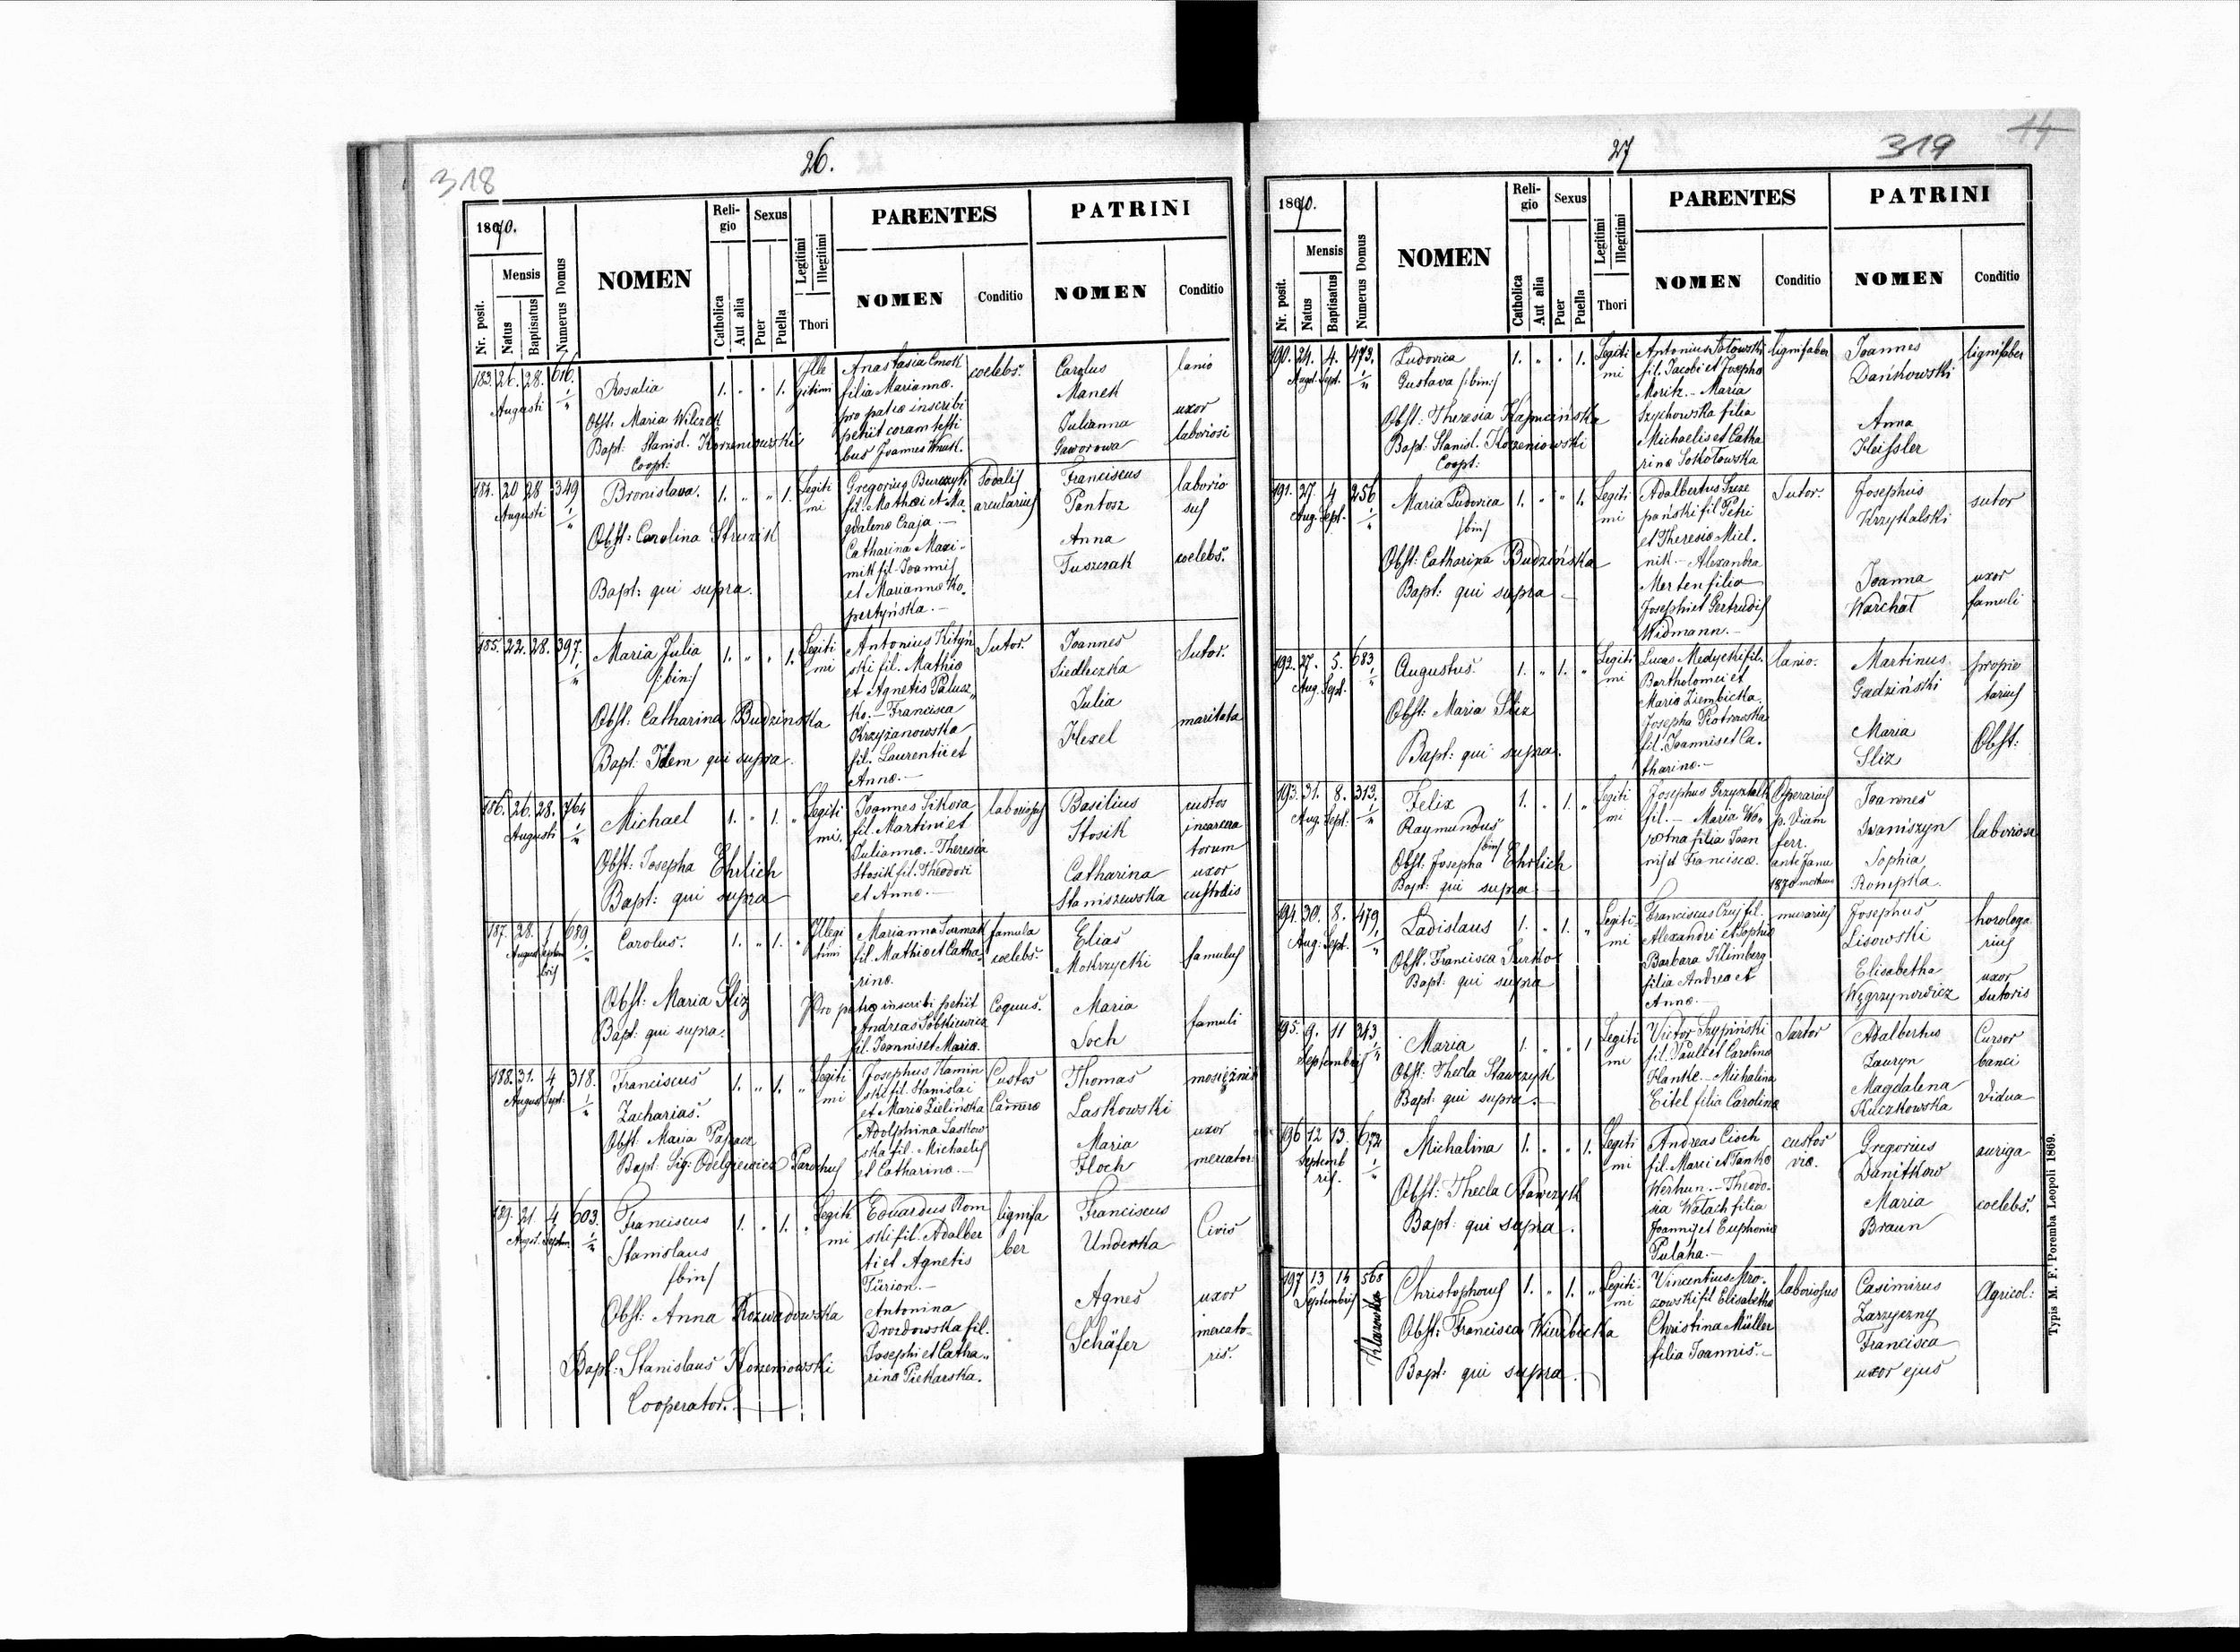 318
26.
1870.
Nr. posit.
Mensis
Natus
Baptisatus
Numerus Domus
NOMEN
Religio
Catholica
Aut alia
Sexus
Puer
Puella
Legitimi
Illegitimi
Thori
PARENTES
NOMEN
Conditio
PATRINI
NOMEN
Conditio
183. 26. 28. 616.
Augusti
Rosalia
1. " " 1.
Ille
gitimi
Obst: Maria Wilczek
Bapt: Stanisl. Korzeniowski
Coopt:
Anastasia Cmok
filia Mariannæ.
pro patre inscribi
petiit coram testi
bus Joannes Wnuk.
coelebs.
Carolus
Manek
Julianna
Gaworowa
lanio
uxor
laboriosi
184. 20 28 349
Augusti
Bronislava.
1. " " 1.
Legiti
mi
Obst: Carolina Struzik
Bapt: qui supra.
Gregorius Burczyk
fil. Mathæi et Ma
gdalenæ Czaja. —
Catharina Maxi
mik fil. Joannis
et Mariannæ Ko
pertyńska. —
Sodalis
arcularius
Franciscus
Pantosz
Anna
Tuszczak
laborio
sus
coelebs.
185. 22. 28. 397.
Maria Julia
/:bin:/
1. " " 1.
Legiti
mi
Obst: Catharina Budzinska
Bapt: Idem qui supra.
Antonius Kityń
ski fil. Mathiæ
et Agnetis Palusz
ko. — Francisca
Krzyżanowska
fil. Laurentii et
Annæ. —
Sutor.
Joannes
Siedleczka
Julia
Hexel
Sutor.
maritata
186. 26. 28. 764
Augusti
Michael
1. " 1. "
Legiti
mi.
Obst: Josepha Ehrlich
Bapt: qui supra
Joannes Sikora
fil. Martini et
Juliannæ. — Theresia
Stosik fil. Theodori
et Annæ. —
laboriosus
Basilius
Stosik
Catharina
Staniszewska
custos
incarcera
torum
uxor
custodis
187. 28. 1 689
August Septem
bris
Carolus.
1. " 1. "
Illegi
timi
Obst: Maria Sliz
Bapt. qui supra.
Marianna Surmak
fil. Mathiæ et Catha
rinæ.
Pro patre inscribi petiit
Andreas Sobkiewicz
fil. Joannis et Mariæ.
famula
coelebs.
Coquus.
Elias
Mokrzycki
Maria
Soch
famulus
famuli
188. 31. 4 318.
August Sept:
Franciscus
Zacharias.
1. " 1. "
Legiti
mi
Obst: Maria Papacz
Bapt. Sig: Odelgiewicz Parochus
Josephus Kamin
ski fil. Stanislai
et Mariæ Zielińska
Adolphina Laskow
ska fil. Michaelis
et Catharinæ. —
Custos
Cameræ
Thomas
Laskowski
Maria
Floch
mosiężnik
uxor
mercator.
189. 21. 4 603.
August. Septem.
Franciscus
Stanislaus
/bin/
1. " 1. "
Legiti
mi
Obst: Anna Rozwadowska
Bapt: Stanislaus Korzeniowski
Cooperator.
Eduardus Rom
ski fil. Adalber
ti et Agnetis
Türion. —
Antonina
Drozdowska fil.
Josephi et Catha
rinæ Piekarska.
lignifa
ber
Franciscus
Underka
Agnes
Schäfer
Civis
uxor
mercato
ris.
27
319
14
1870.
Nr. posit.
Mensis
Natus
Baptisatus
Numerus Domus
NOMEN
Religio
Catholica
Aut alia
Sexus
Puer
Puella
Legitimi
Illegitimi
Thori
PARENTES
NOMEN
Conditio
PATRINI
NOMEN
Conditio
190. 24. 4. 473.
Augt. Sept.
Ludovica
Gustava /:bin:/
1. " " 1.
Legiti
mi
Obst: Theresia Kapucińska
Bapt: Stanisl. Korzeniowski
Coopt:
Antonius Sotowski
fil. Jacobi et Josephæ
Moritz. — Maria
Szychowska filia
Michaelis et Catha
rinæ Sokołowska
lignifaber
Joannes
Dańkowski
Anna
Heissler
lignifaber
191. 27. 4 256
Aug. Sept.
Maria Ludovica
/bin/
1. " " 1.
Legiti
mi
Obst: Catharina Budzińska
Bapt: qui supra —
Adalbertus Szcze
pański fil. Petri
et Theresiæ Miel
nik — Alexandra
Merten filia
Josephi et Gertrudis
Widmann. —
Sutor.
Josephus
Krzykalski
Joanna
Warchał
sutor
uxor
famuli
192. 27. 5. 683
Aug. Sept.
Augustus.
1. " 1. "
Legiti
mi
Obst: Maria Sliz
Bapt: qui supra.
Lucas Medycki fil.
Bartholomei et
Mariæ Ziembicka.
Josepha Piotrowska
fil. Joannis et Ca
tharinæ. —
lanio.
Martinus
Gadziński
Maria
Sliz
proprie
tarius
Obst:
193. 31. 8. 313.
Aug. Sept.
Felix
Raymundus
/bin/
1. " 1. "
Legiti
mi
Obst: Josepha Ehrlich
Bapt: qui supra —
Josephus Grzysztalk
fil. — Maria Wo
rotna filia Joan
nis et Franciscæ.
Operarius
p. Viam
ferr.
ante Janu
1870 mortuus
Joannes
Iwaniszyn
Sophia
Rompka.
laboriosi
194. 30. 8. 479
Aug. Sept.
Ladislaus
1. " 1. "
Legiti
mi
Obst. Francisca Turko
Bapt: qui supra
Franciscus Czuj fil.
Alexandri et Sophiæ
Barbara Klimberg
filia Andreæ et
Annæ. —
murarius
Josephus
Lisowski
Elisabetha
Węgrzynowicz
horologa
rius
uxor
sutoris
195. 9. 11 313
Septembris
Maria
1. " " 1
Legiti
mi
Obst: Thecla Stawczyk
Bapt: qui supra. —
Victor Szypiński
fil. Pauli et Carolinæ
Hanke. — Michalina
Eitel filia Carolinæ
Sartor
Adalbertus
Lauryn
Magdalena
Kuczkowska
Cursor
banci
Vidua
196 12 13. 672
Septemb
ris.
Michalina
1. " " 1.
Legiti
mi
Obst: Thecla Stawczyk
Bapt: qui supra.
Andreas Cioch
fil. Marci et Tankæ
Werhun. — Theodo
sia Wołach filia
Joannis et Euphemiæ
Pulaha. —
custos
viæ.
Gregorius
Danitkow
Maria
Braun
auriga
coelebs.
197 13 14 568
Septembris
Klasowka
Christophorus
1. " 1. "
Legiti
mi
Obst: Francisca Wierzbicka
Bapt: qui supra.
Vincentius Mro
zowski fil Elisabethæ
Christina Müller
filia Joannis. —
laboriosus
Casimirus
Zarzyczny
Francisca
uxor ejus
Agricol:
Typis M. F. Poremba Leopoli 1869.